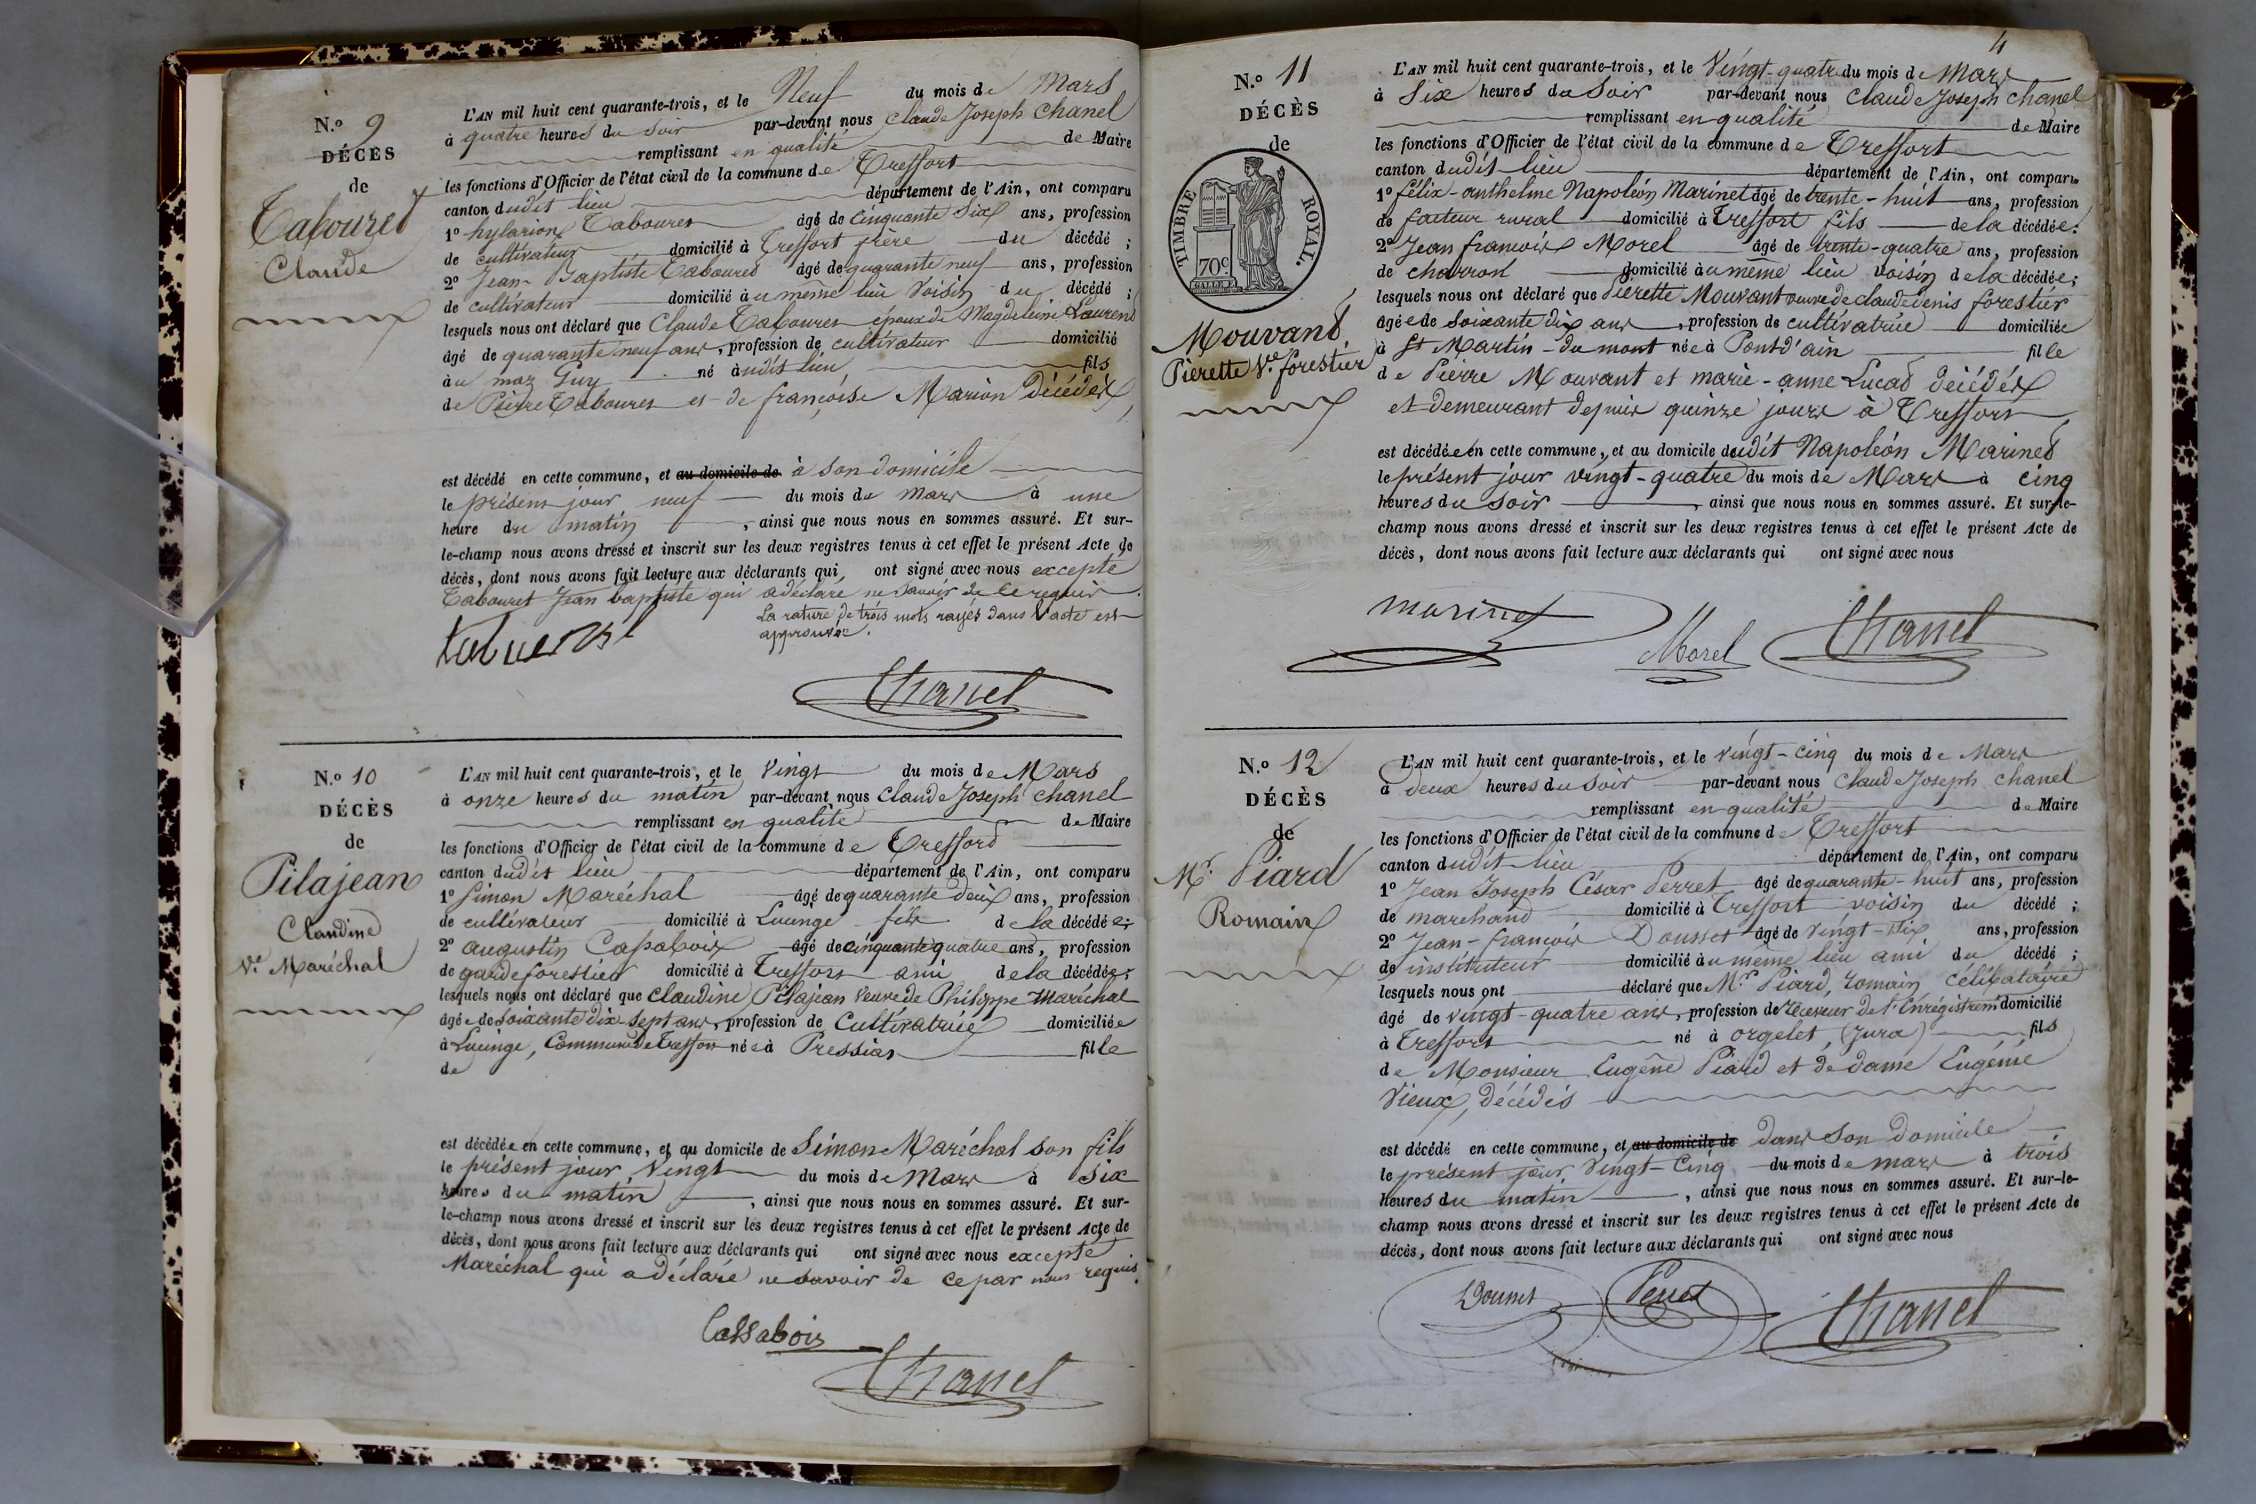 N.º 9
DÉCÈS
de
Tabouret
Claude
L'AN mil huit cent quarante-trois, et le Neuf du mois de Mars
à quatre heures du soir par-devant nous Claude Joseph Chanel
remplissant en qualité de Maire
les fonctions d'Officier de l'état civil de la commune de Treffort
canton dudit lieu département de l'Ain, ont comparu
1º hylarion Tabouret âgé de cinquante six ans, profession
de cultivateur domicilié à Treffort frère du décédé ;
2º Jean-Baptiste Tabouret âgé de quarante neuf ans, profession
de cultivateur domicilié au même lieu voisin du décédé ;
lesquels nous ont déclaré que Claude Tabouret époux de Magdeleine Laurent
âgé de quarante neuf ans, profession de cultivateur domicilié
au maz Guy né audit lieu fils
de Pierre Tabouret et de françoise Marion décédés,
est décédé en cette commune, et au domicile de à son domicile
le présent jour neuf du mois de mars à une
heure du matin, ainsi que nous nous en sommes assuré. Et sur-
le-champ nous avons dressé et inscrit sur les deux registres tenus à cet effet le présent Acte de
décès, dont nous avons fait lecture aux déclarants qui ont signé avec nous excepté
Tabouret Jean baptiste qui a déclaré ne savoir de ce requis.
La rature de trois mots rayés dans l'acte est
approuvée.
Chanel
N.º 10
DÉCÈS
de
Pilajean
Claudine
Ve. Maréchal
L'AN mil huit cent quarante-trois, et le Vingt du mois de Mars
à onze heures du matin par-devant nous Claude Joseph Chanel
remplissant en qualité de Maire
les fonctions d'Officier de l'état civil de la commune de Treffort
canton dudit lieu département de l'Ain, ont comparu
1º Simon Maréchal âgé de quarante deux ans, profession
de cultivateur domicilié à Lucinge fils de la décédée ;
2º augustin Cassabois âgé de cinquante quatre ans, profession
de garde forestier domicilié à Treffort ami de la décédée ;
lesquels nous ont déclaré que Claudine Pilajean Veuve de Philippe Maréchal
âgée de soixante dix sept ans, profession de Cultivatrice domiciliée
à Lucinge, Commune de Treffort née à Pressiat fille
de
est décédée en cette commune, et au domicile de Simon Maréchal son fils
le présent jour Vingt du mois de Mars à Six
heures du matin, ainsi que nous nous en sommes assuré. Et sur-
le-champ nous avons dressé et inscrit sur les deux registres tenus à cet effet le présent Acte de
décès, dont nous avons fait lecture aux déclarants qui ont signé avec nous excepté
Maréchal qui a déclaré ne savoir de ce par nous requis.
Cassabois
Chanel
4
N.º 11
DÉCÈS
de
TIMBRE ROYAL.
70c
Mouvant
Pierette Ve. forestier
L'AN mil huit cent quarante-trois, et le Vingt-quatre du mois de Mars
à Six heures du Soir par-devant nous Claude Joseph Chanel
remplissant en qualité de Maire
les fonctions d'Officier de l'état civil de la commune de Treffort
canton dudit lieu département de l'Ain, ont comparu
1º félix-anthelme Napoléon Marinet âgé de trente-huit ans, profession
de facteur rural domicilié à Treffort fils de la décédée ;
2º Jean françois Morel âgé de trente-quatre ans, profession
de charron domicilié au même lieu voisin de la décédée ;
lesquels nous ont déclaré que Pierette Mouvant veuve de claude denis forestier
âgée de soixante dix ans, profession de cultivatrice domiciliée
à St Martin-du mont née à Pont-d'ain fille
de Pierre Mouvant et marie-anne Lucad décédés
et demeurant depuis quinze jours à Treffort
est décédée en cette commune, et au domicile dudit Napoléon Marinet
le présent jour vingt-quatre du mois de Mars à cinq
heures du Soir, ainsi que nous nous en sommes assuré. Et sur-le-
champ nous avons dressé et inscrit sur les deux registres tenus à cet effet le présent Acte de
décès, dont nous avons fait lecture aux déclarants qui ont signé avec nous
marinet
Morel
Chanel
N.º 12
DÉCÈS
de
Mr. Piard
Romain
L'AN mil huit cent quarante-trois, et le vingt-cinq du mois de Mars
à Deux heures du Soir par-devant nous Claude Joseph Chanel
remplissant en qualité de Maire
les fonctions d'Officier de l'état civil de la commune de Treffort
canton dudit lieu département de l'Ain, ont comparu
1º Jean Joseph César Perret âgé de quarante-huit ans, profession
de marchand domicilié à Treffort voisin du décédé ;
2º Jean-françois Dousset âgé de vingt-dix ans, profession
de instituteur domicilié au même lieu ami du décédé ;
lesquels nous ont déclaré que Mr. Piard, romain célibataire
âgé de vingt-quatre ans, profession de Receveur de l'Enrégistremt domicilié
à Treffort né à orgelet, (Jura) fils
de Monsieur Eugène Piard et de dame Eugénie
Vieux, décédés
est décédé en cette commune, et au domicile de dans son domicile
le présent jour Vingt-Cinq du mois de mars à trois
heures du matin, ainsi que nous nous en sommes assuré. Et sur-le-
champ nous avons dressé et inscrit sur les deux registres tenus à cet effet le présent Acte de
décès, dont nous avons fait lecture aux déclarants qui ont signé avec nous
Perret
Chanel